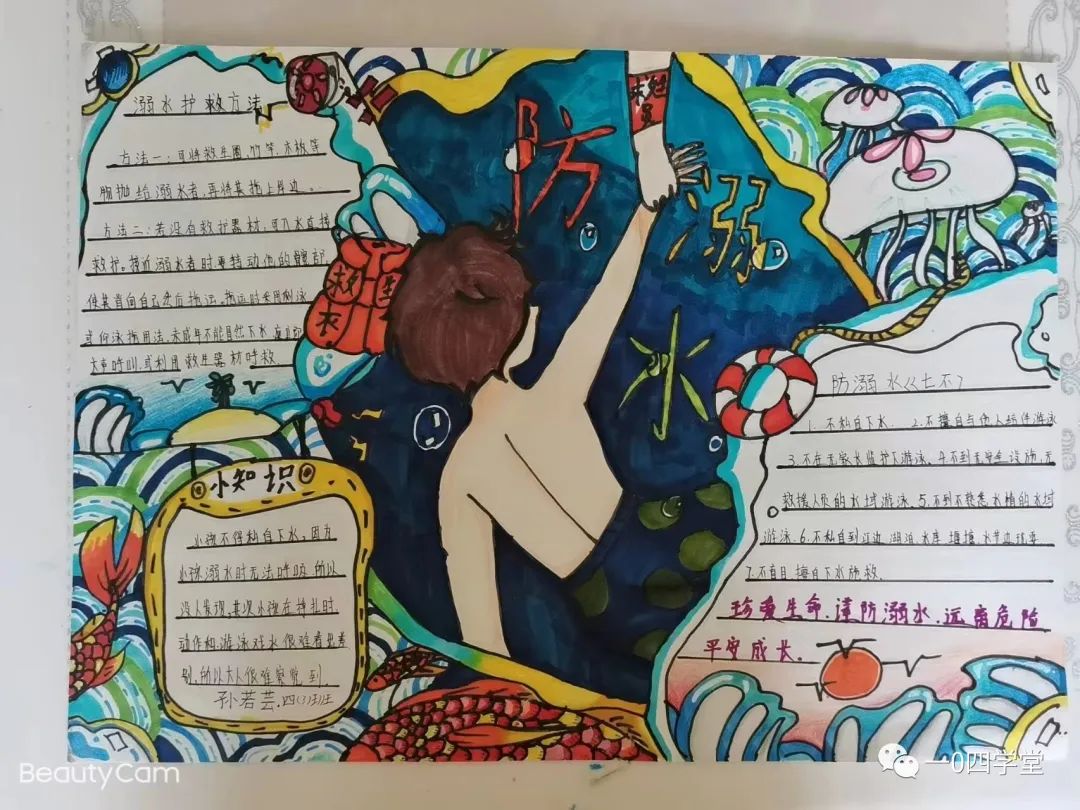 溺水护救方法
方法一：可将救生圈、竹竿、木板等
物抛给溺水者，再将其拖上岸边。
方法二：若没有救护器材，可入水直接
救护。接近溺水者时要转动他的髋部，
使其背向自己然后拖运。拖运时采用侧泳
或仰泳拖用法，未成年不能自然下水
大声呼叫，或利用救生器材呼救
防
溺
水
救生衣
救生员
小知识
小孩不得私自下水。因为
小孩溺水时无法呼喊，所以
没人发现，其次小孩在挣扎时
动作和游泳戏水很难看出差
别，所以大人很难察觉到。
孙若芸.四(3)班
防溺水《七不》
1.不私自下水. 2.不擅自与他人结伴游泳
3.不在无家长监护下游泳.4.不到无安全设施,无
救援人员的水域游泳.5.不到不熟悉水情的水域
游泳.6.不私自到江边湖泊,水库
7.不盲目擅自下水施救.
珍爱生命.谨防溺水.远离危险
平安成长.
BeautyCam
一0四学堂